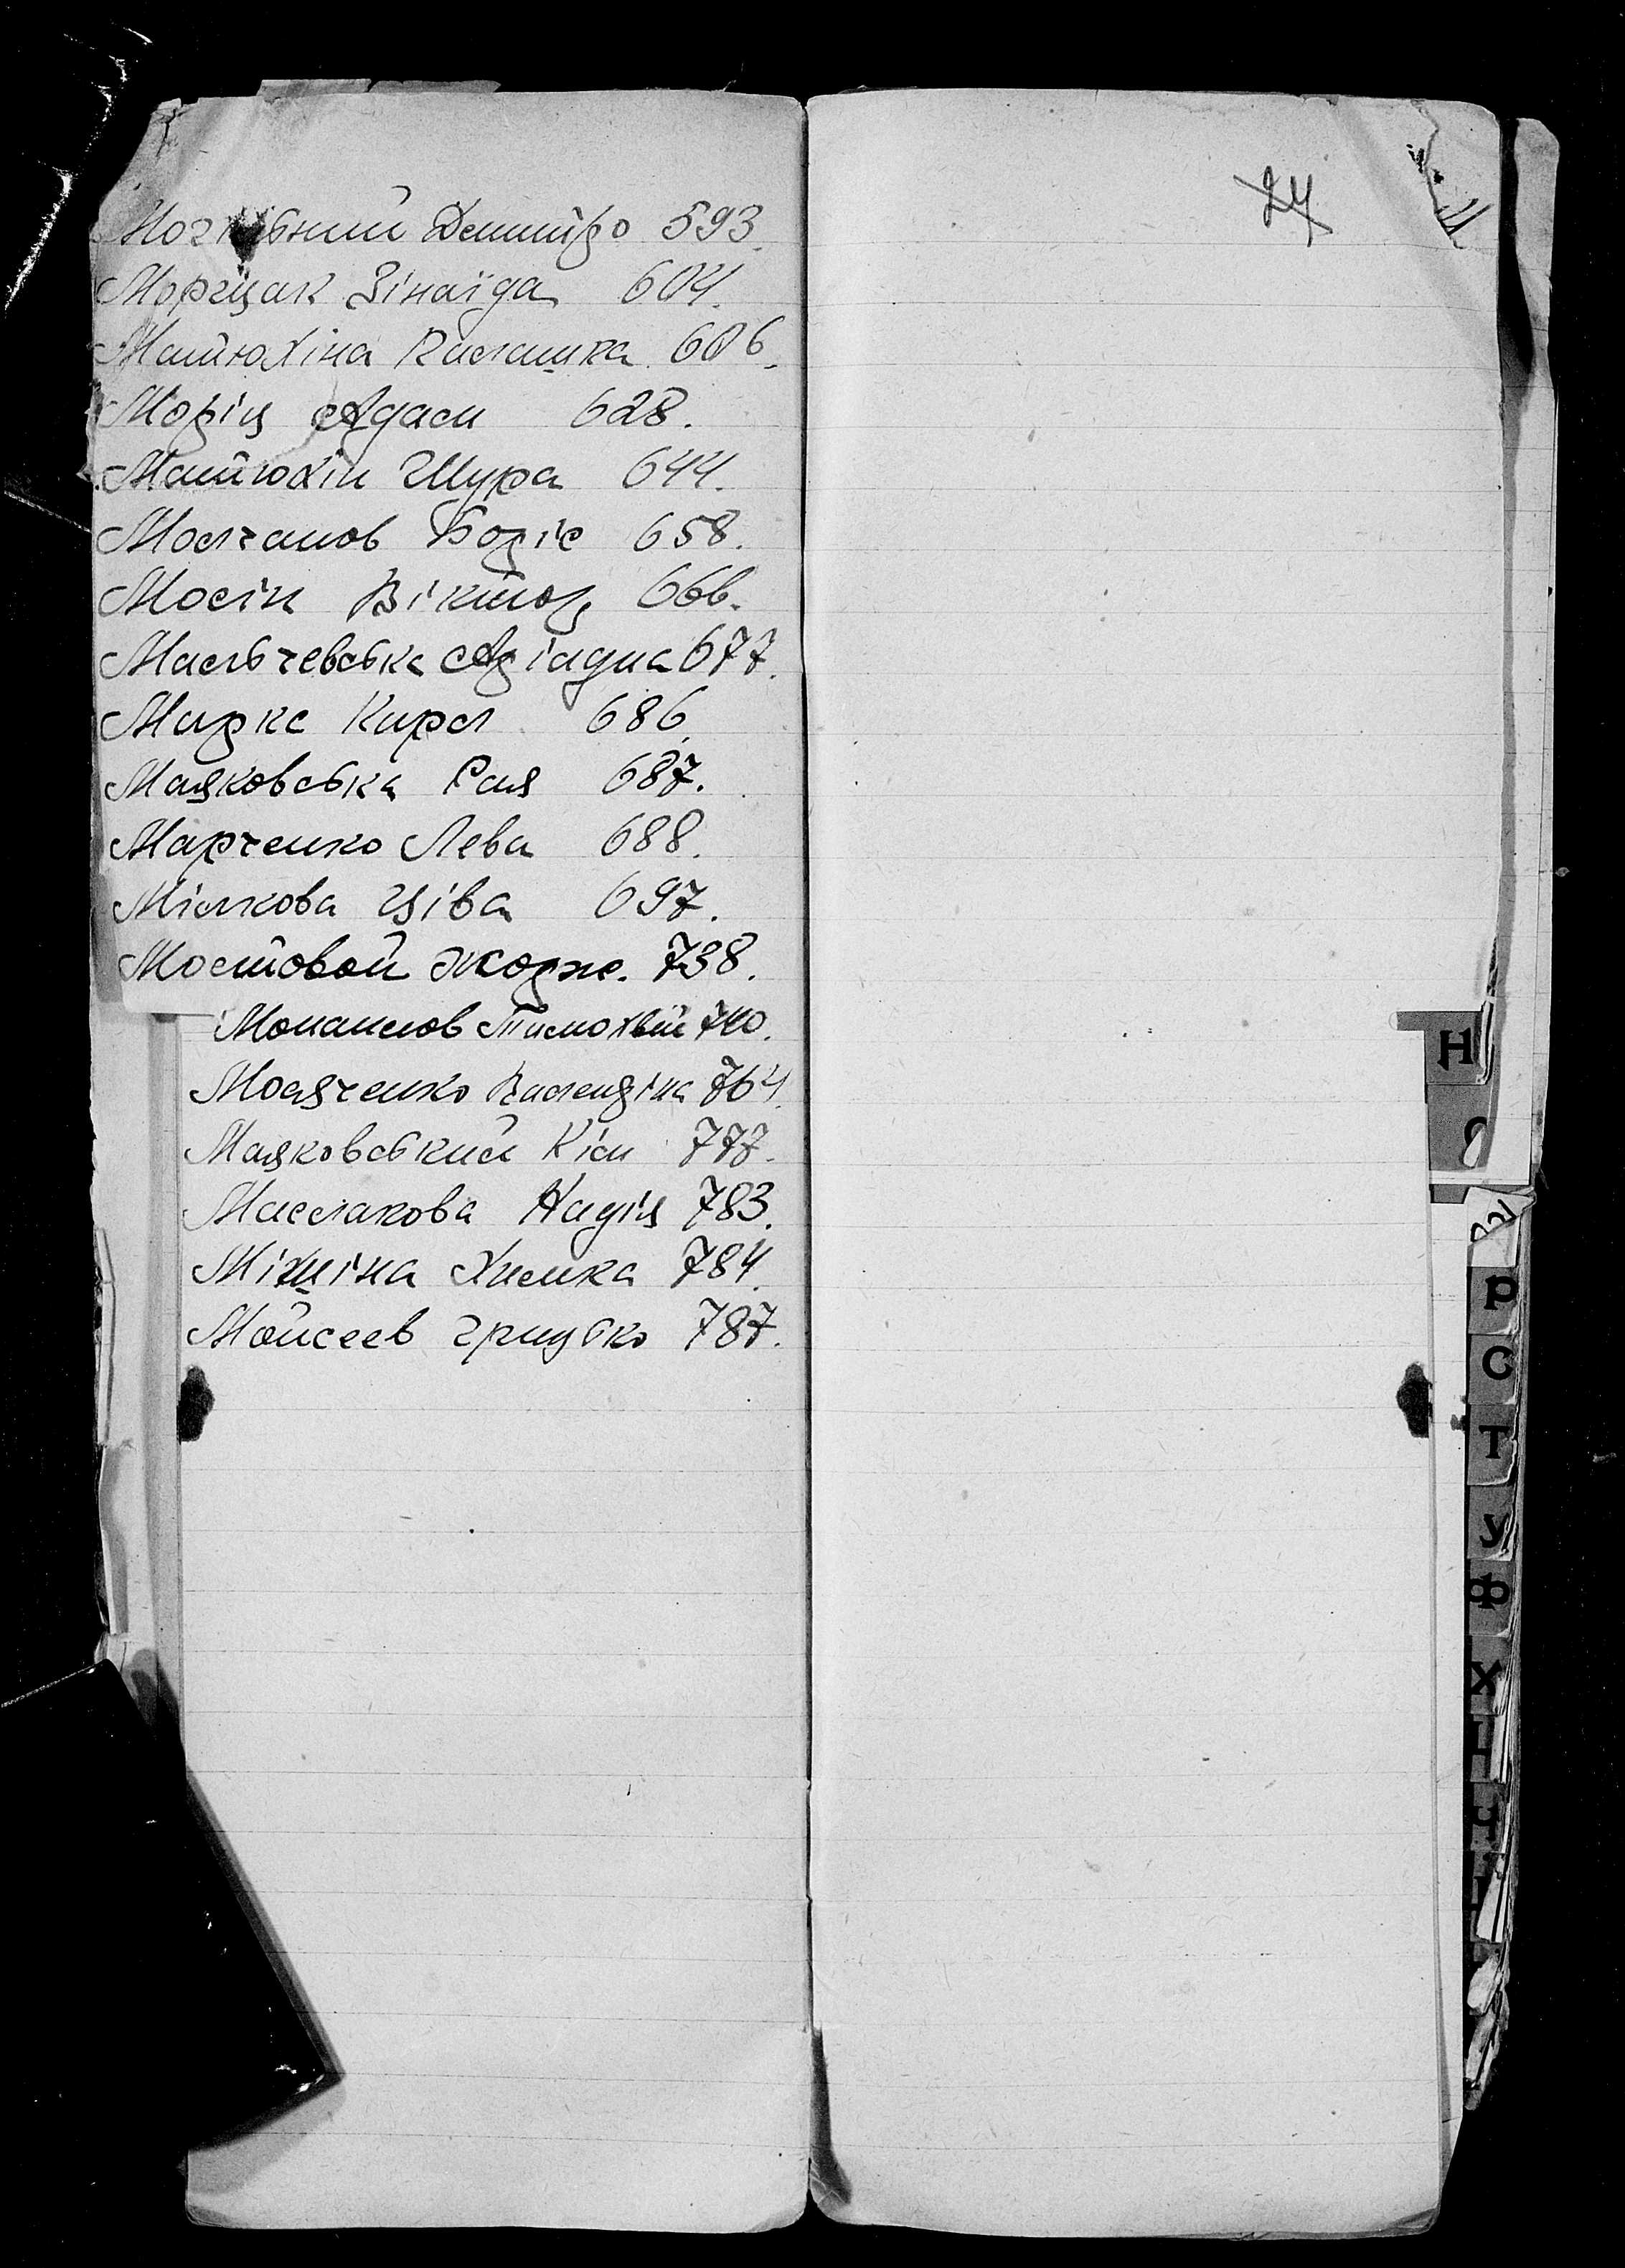 Могильний Дмитро 593.
Моргцак Зінаїда 604.
Матюхіна Клашка 606.
Моріц Адам 628.
Матюхін Шура 644.
Молчанов Боріс 658.
Мосін Віктор 666.
Мальчевська Аріадна 677.
Маркс Карл 686.
Маяковська Рая 687.
Марченко Лева 688.
Мілкова Ціва 697.
Мостовой Жорж. 738.
Монахов Тимохвій 740.
Моляченко Валендіна 764.
Маяковський Кім 777.
Маслакова Надія 783.
Мішіна Химка 784.
Мойсеев Грицько 787.
24
Н
О
П
Р
С
Т
У
Ф
Х
Ц
Ч